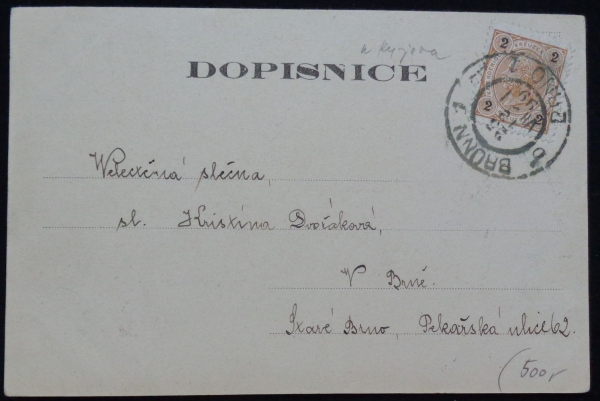 u Kyjova
DOPISNICE
2 2
2 2
BRÜNN 1 BRNO 1
Welectěná slečna,
sl. Kristina Dvořáková,
V Brně.
Staré Brno, Pekařská ulice 62.
(500,-